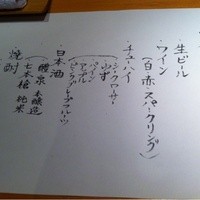 ・生ビール
・ワイン
(白・赤・スパークリング)
・チューハイ
(シークワーサー
ゆず
パイン
アップル
ピンクグレープフルーツ)
・日本酒
(醴泉 本醸造
七本槍 純米
焼酎